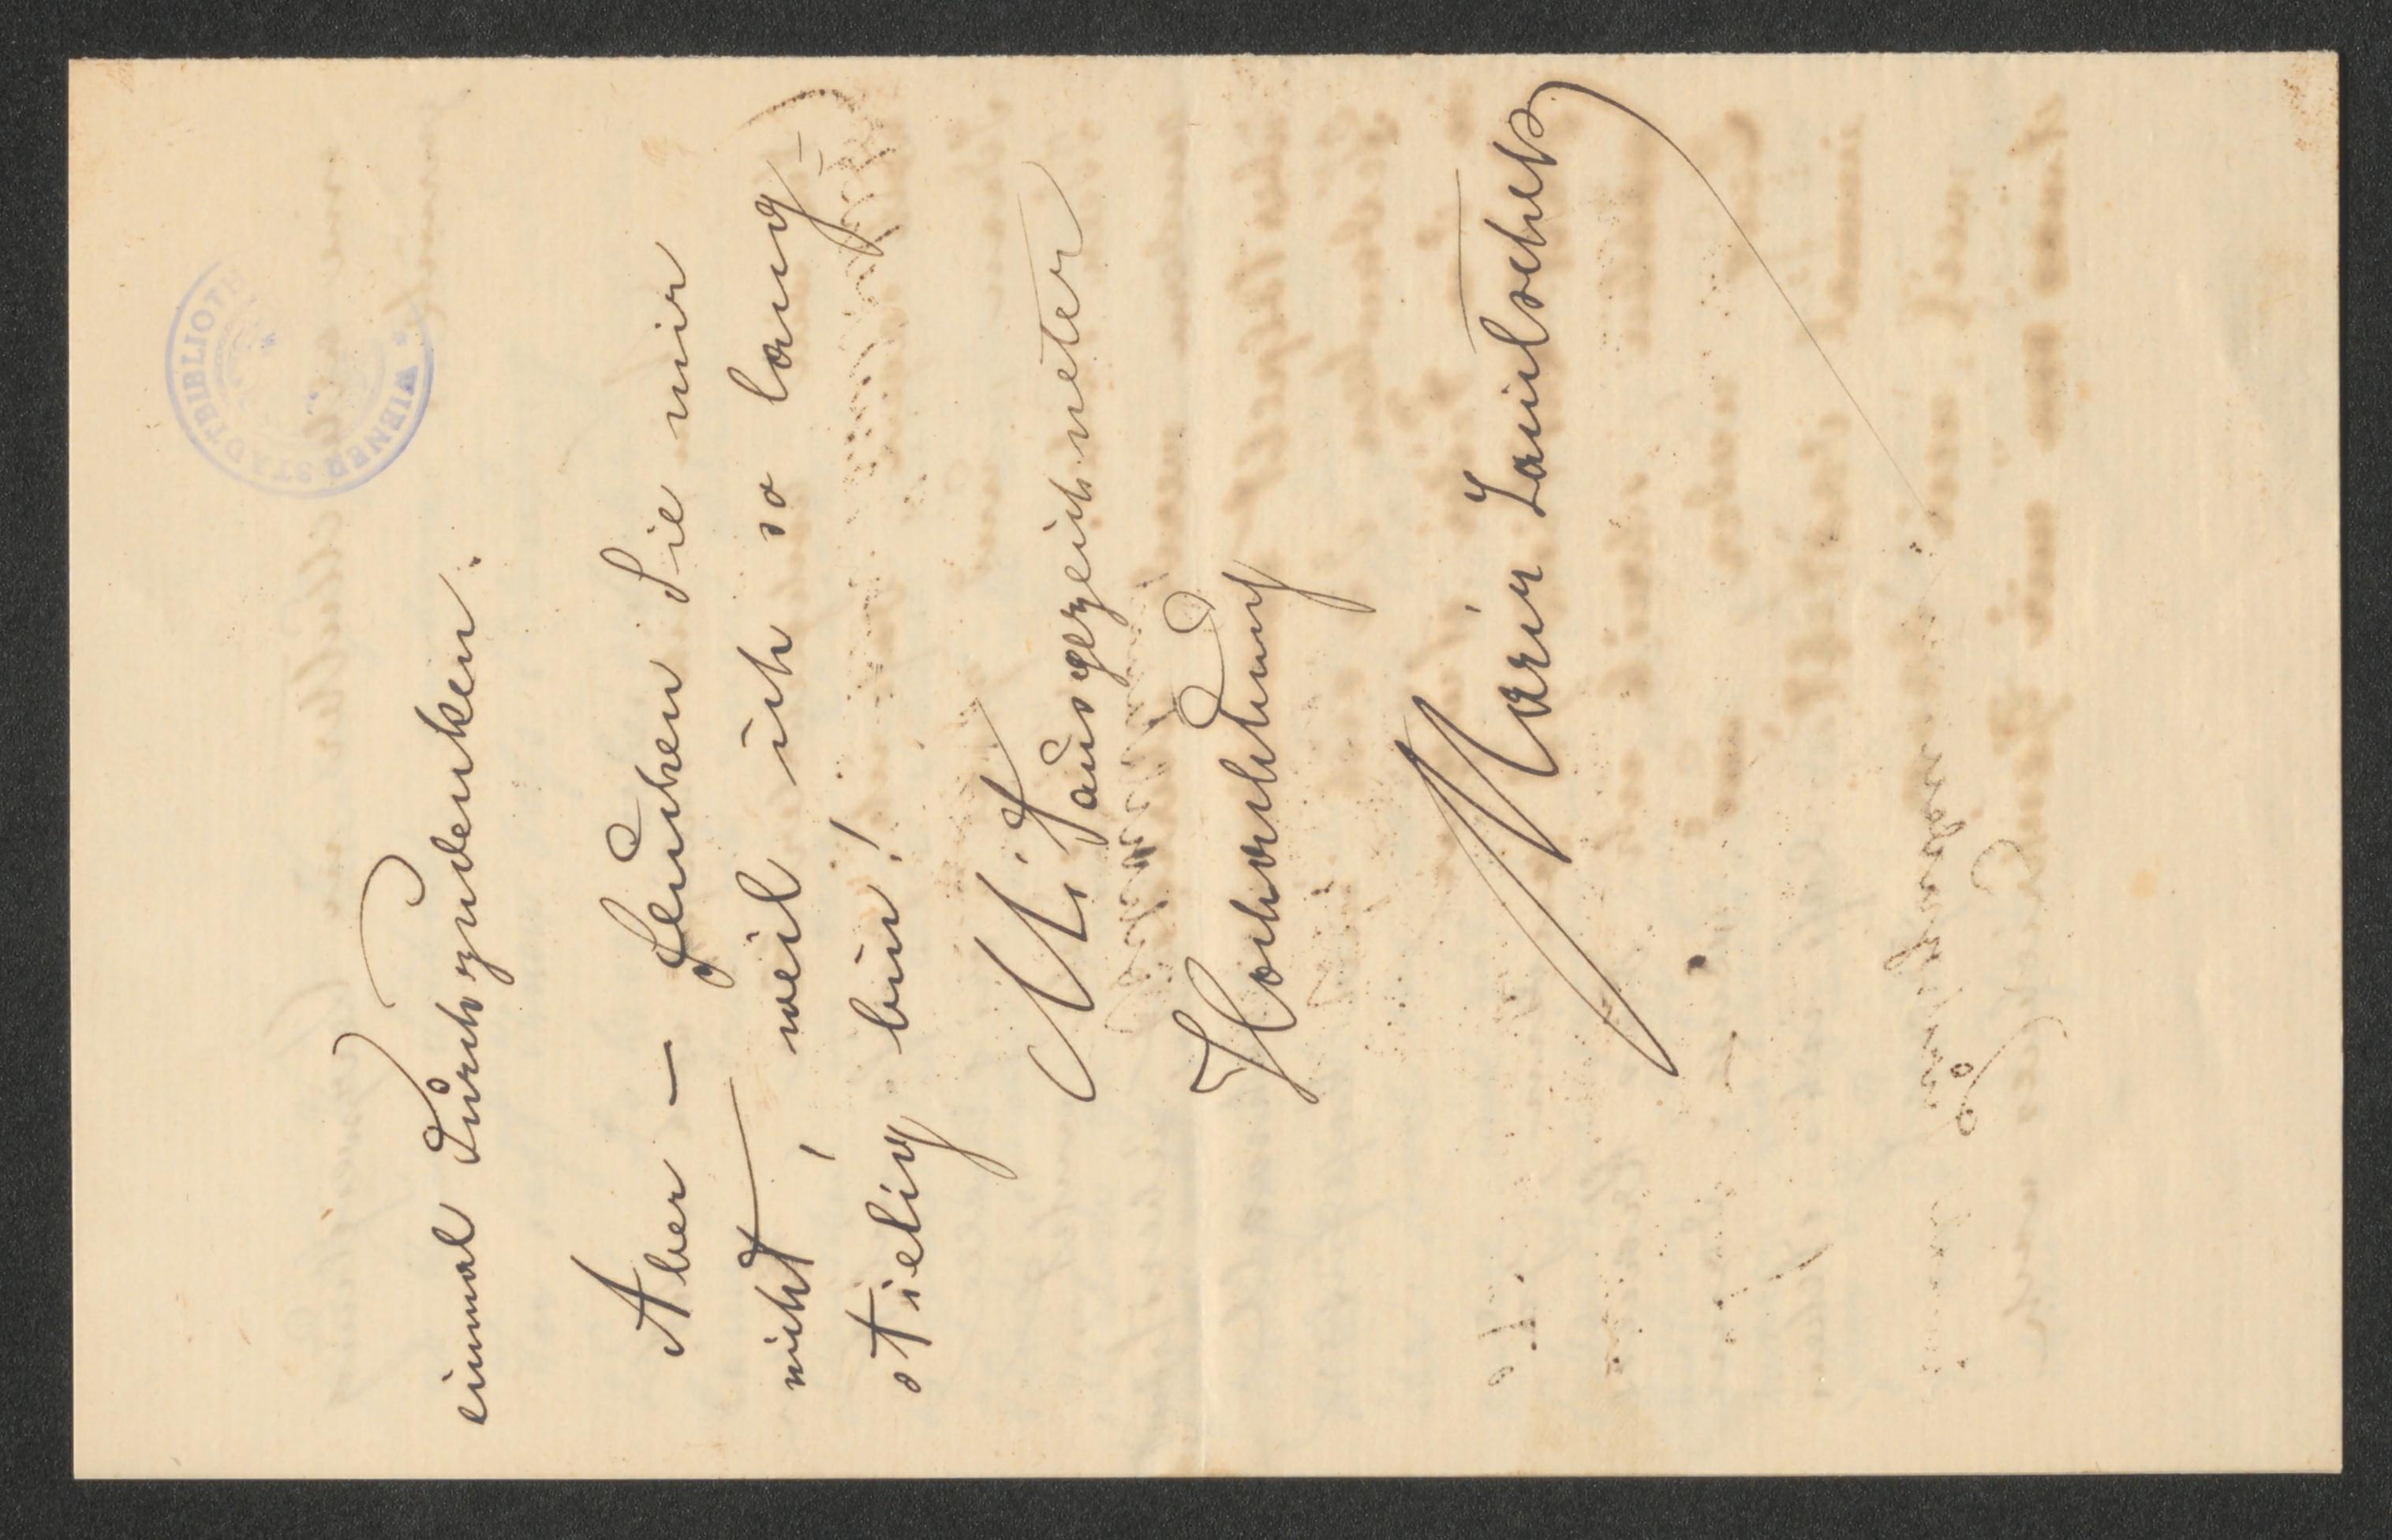 einmal durchzudenken.
Aber – fluchen Sie mir
nicht, weil ich so lang=
stielig bin!
Mit ausgezeichneter
Hochachtung
Marie
WIENER STADTBIBLIOTH